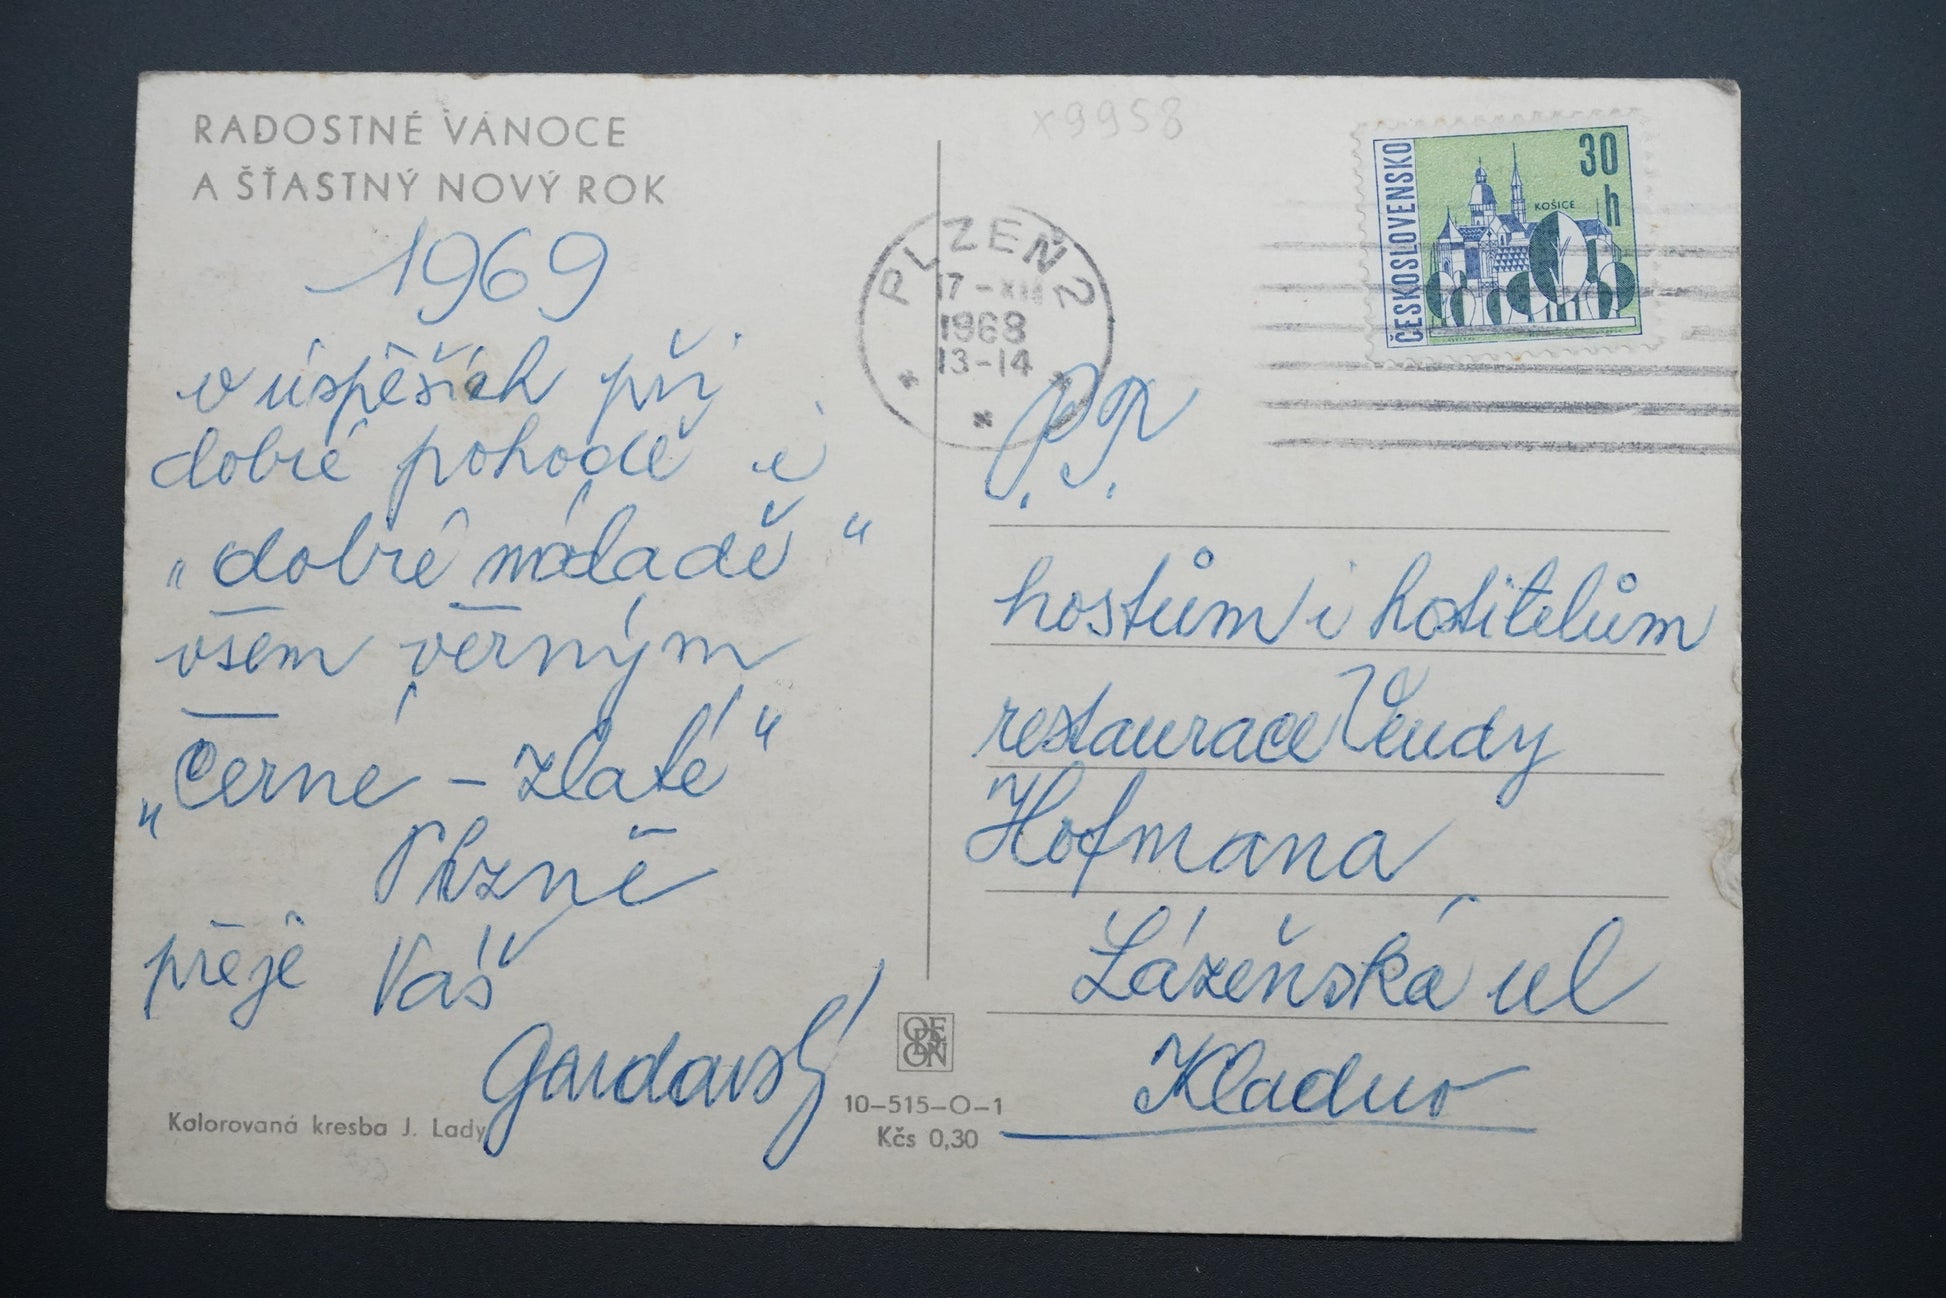 RADOSTNÉ VÁNOCE
A ŠŤASTNÝ NOVÝ ROK
1969
v úspěších při
dobré pohodě i
„dobré náladě“
všem věrným
„Černé – zlaté“
Plzně
přeje Váš
Kolorovaná kresba J. Lady
x9958
PLZEŇ 2
17 -XII
1968
13-14
ČESKOSLOVENSKO
30
h
KOŠICE
P. T.
hostům i hostitelům
restaurace Vendy
Hofmana
Lázeňská ul
Kladno
ODEON
10–515–O–1
Kčs 0,30